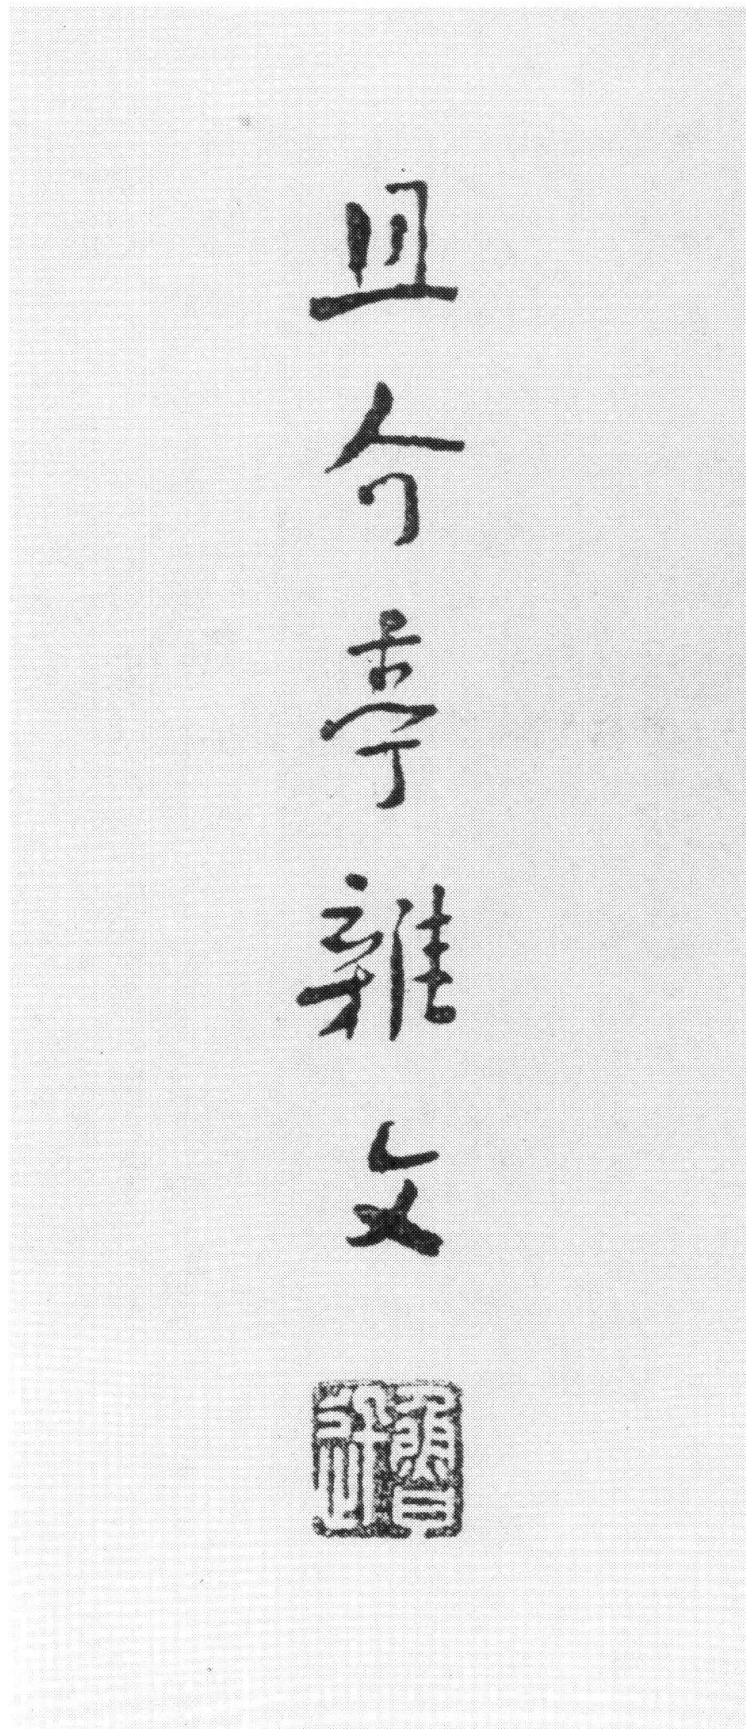 且介亭雜文